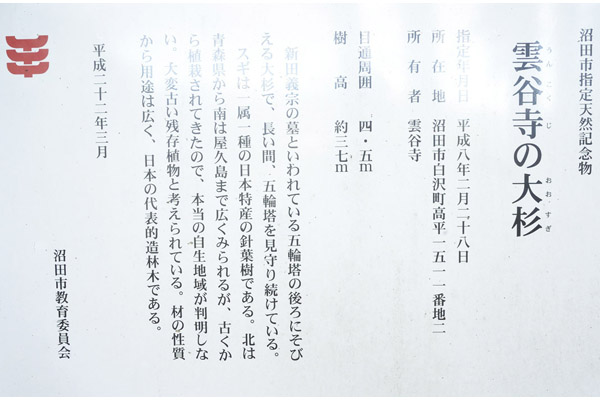 沼田市指定天然記念物
雲谷寺の大杉
うんこくじ おおすぎ
指定年月日 平成八年二月二十八日
所在地 沼田市白沢町高平一五一一番地二
所有者 雲谷寺
目通周囲 四・五m
樹高 約三七m
新田義宗の墓といわれている五輪塔の後ろにそび
える大杉で、長い間、五輪塔を見守り続けている。
スギは一属一種の日本特産の針葉樹である。北は
青森県から南は屋久島まで広くみられるが、古くか
ら植栽されてきたので、本当の自生地域が判明しな
い。大変古い残存植物と考えられている。材の性質
から用途は広く、日本の代表的造林木である。
平成二十二年三月
沼田市教育委員会